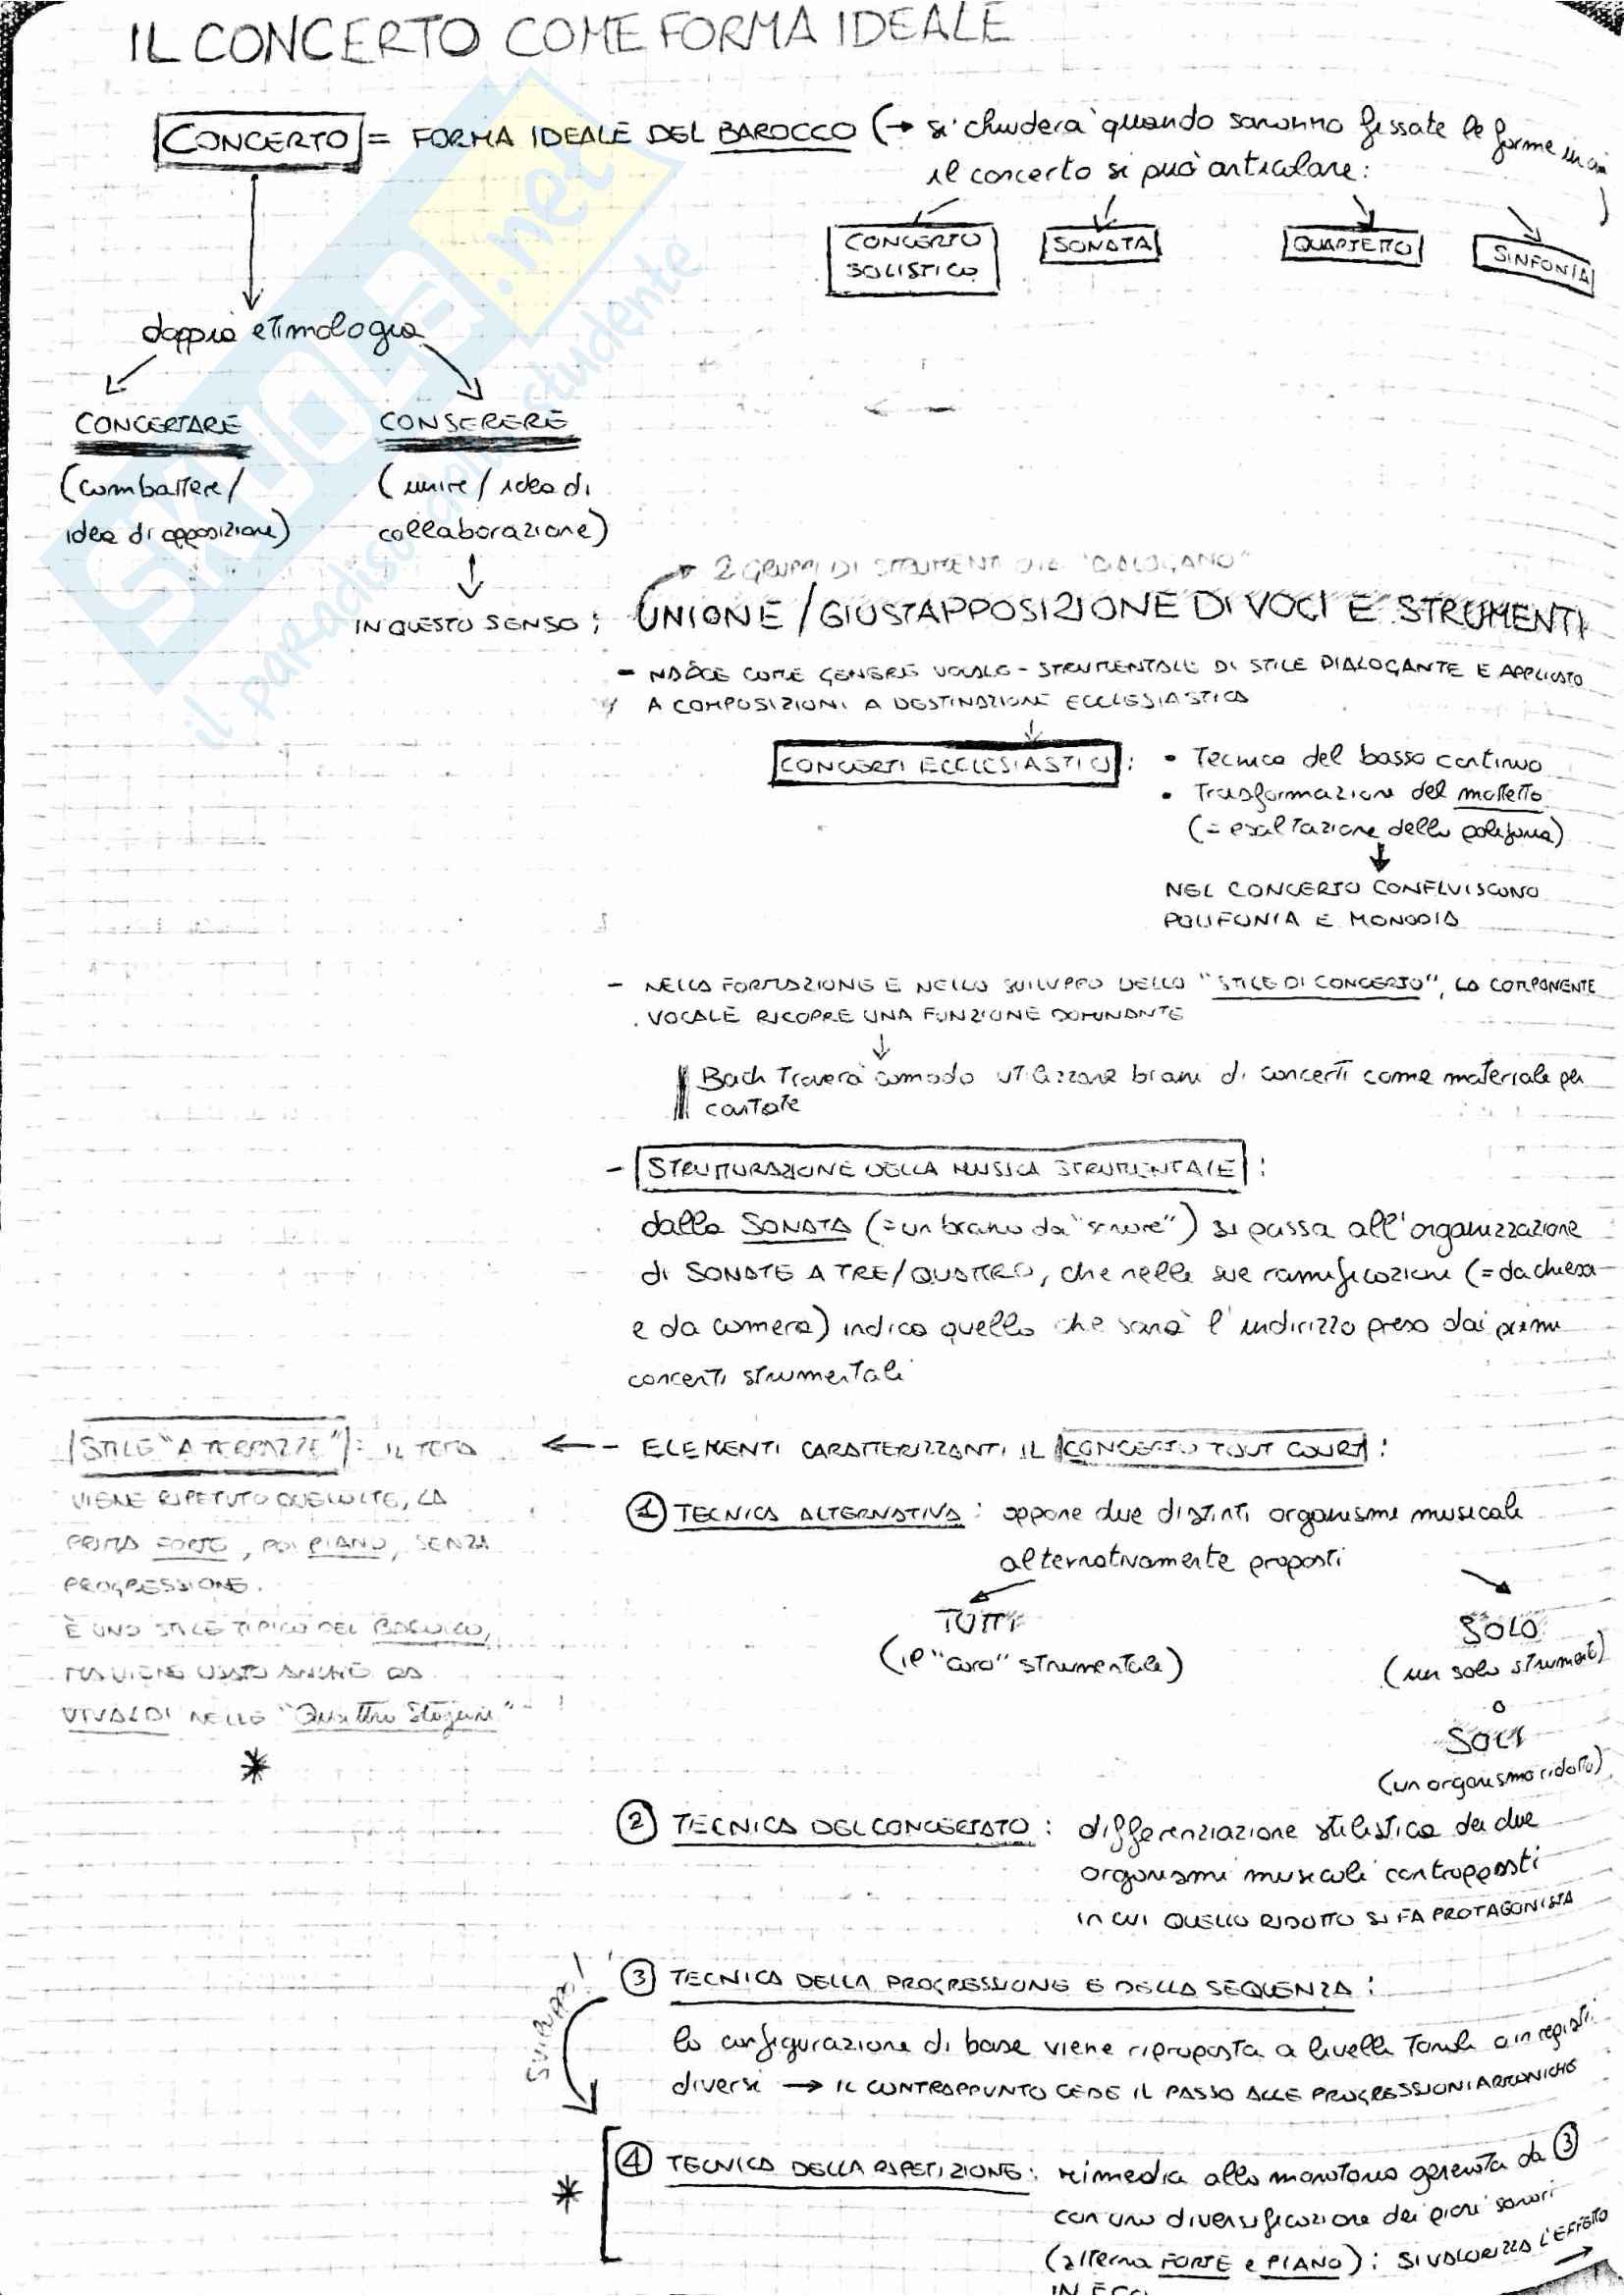 IL CONCERTO COME FORMA IDEALE
CONCERTO = FORMA IDEALE DEL BAROCCO (→ si chiuderà quando saranno fissate le forme in cui
il concerto si può articolare:
CONCERTO SOLISTICO
SONATA
QUARTETTO
SINFONIA
)
doppia etimologia
CONCERTARE
CONSERERE
(combattere/
idea di opposizione)
(unire / idea di
collaborazione)
IN QUESTO SENSO:
2 GRUPPI DI STRUMENTI CHE "DIALOGANO"
UNIONE / GIUSTAPPOSIZIONE DI VOCI E STRUMENTI
- NASCE COME GENERE VOCALE - STRUMENTALE DI STILE DIALOGANTE E APPLICATO
A COMPOSIZIONI A DESTINAZIONE ECCLESIASTICA
CONCERTI ECCLESIASTICI:
• Tecnica del basso continuo
• Trasformazione del mottetto
(= esaltazione della polifonia)
NEL CONCERTO CONFLUISCONO
POLIFONIA E MONODIA
- NELLA FORMAZIONE E NELLO SVILUPPO DELLO "STILE DI CONCERTO", LA COMPONENTE
VOCALE RICOPRE UNA FUNZIONE DOMINANTE
Bach troverà comodo utilizzare brani di concerti come materiale per
cantate
- STRUTTURAZIONE DELLA MUSICA STRUMENTALE:
dalla SONATA (= un brano da "sonare") si passa all'organizzazione
di SONATE A TRE/QUATTRO, che nelle sue ramificazioni (= da chiesa
e da camera) indica quello che sarà l'indirizzo preso dai primi
concerti strumentali
- ELEMENTI CARATTERIZZANTI IL CONCERTO TOUT COURT:
STILE "A TERRAZZE" = IL TEMA
VIENE RIPETUTO DUE VOLTE, LA
PRIMA FORTE, POI PIANO, SENZA
PROGRESSIONE.
È UNO STILE TIPICO DEL BAROCCO,
MA VIENE USATO ANCHE DA
VIVALDI NELLE "Quattro Stagioni"
*
① TECNICA ALTERNATIVA: oppone due distinti organismi musicali
alternativamente proposti
TUTTI
(il "coro" strumentale)
SOLO
(un solo strumento)
o
SOLI
(un organismo ridotto)
② TECNICA DEL CONCERTATO: differenziazione stilistica dei due
organismi musicali contrapposti
IN CUI QUELLO RIDOTTO SI FA PROTAGONISTA
③ TECNICA DELLA PROGRESSIONE E DELLA SEQUENZA:
la configurazione di base viene riproposta a livelli tonali o in registri
diversi → IL CONTRAPPUNTO CEDE IL PASSO ALLE PROGRESSIONI ARMONICHE
SVILUPPO!
* ④ TECNICA DELLA RIPETIZIONE: rimedia alla monotonia generata da ③
con una diversificazione dei piani sonori
(alterna FORTE e PIANO): SI VALORIZZA L'EFFETTO
IN ECO
SKUOLA.net
il paradiso dello studente